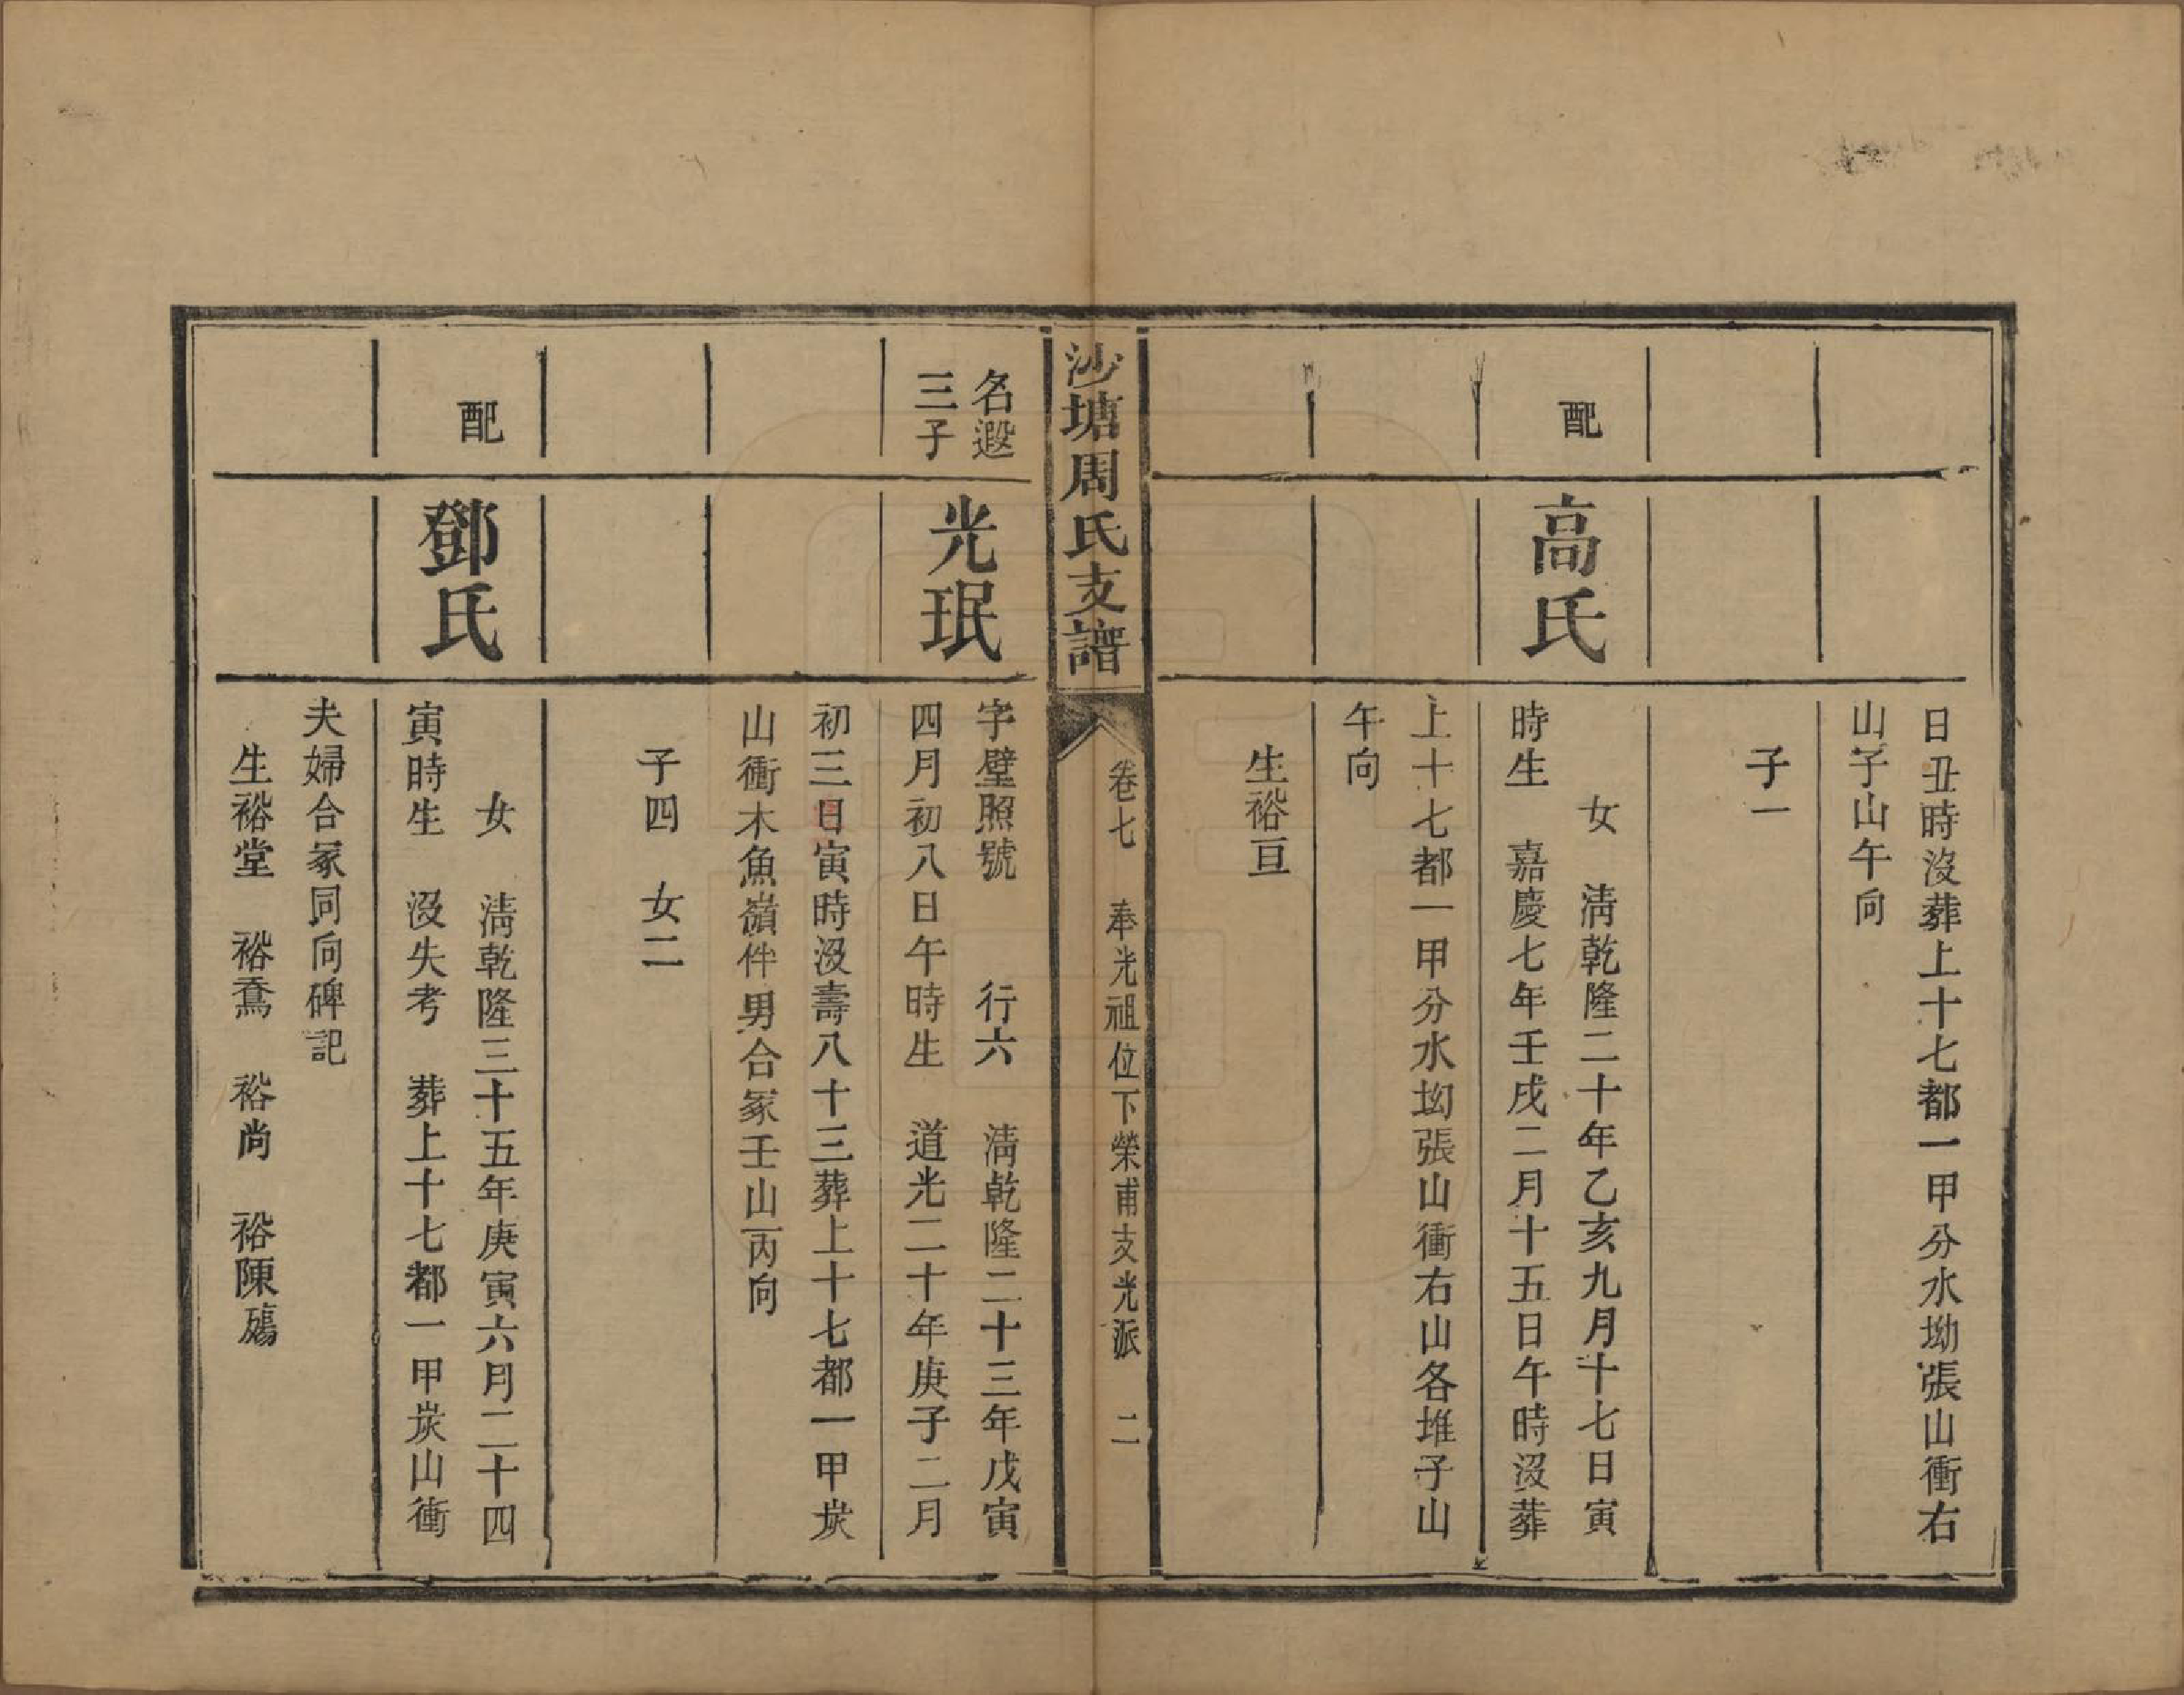 日丑時沒葬上十七都一甲分水坳張山衝右
山子山午向
子一
配
高氏
女　清乾隆二十年乙亥九月十七日寅
時生　嘉慶七年壬戌二月十五日午時沒葬
上十七都一甲分水坳張山衝右山各堆子山
午向
生裕亘
沙塘周氏支譜
卷七　奉光祖位下榮甫支光派　二
名遐
三子
光珉
字壁照號　行六　清乾隆二十三年戊寅
四月初八日午時生　道光二十年庚子二月
初三日寅時沒壽八十三葬上十七都一甲炭
山衝木魚嶺件男合冢壬山丙向
子四　女二
配
鄧氏
女　清乾隆三十五年庚寅六月二十四
寅時生　沒失考　葬上十七都一甲炭山衝
夫婦合冢同向碑記
生裕堂　裕鴌　裕尚　裕陳殤